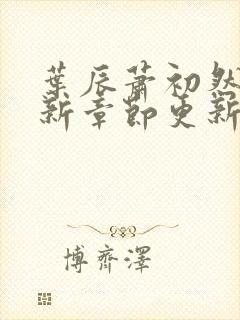 葉辰蕭初然
新章節更新
博齊澤